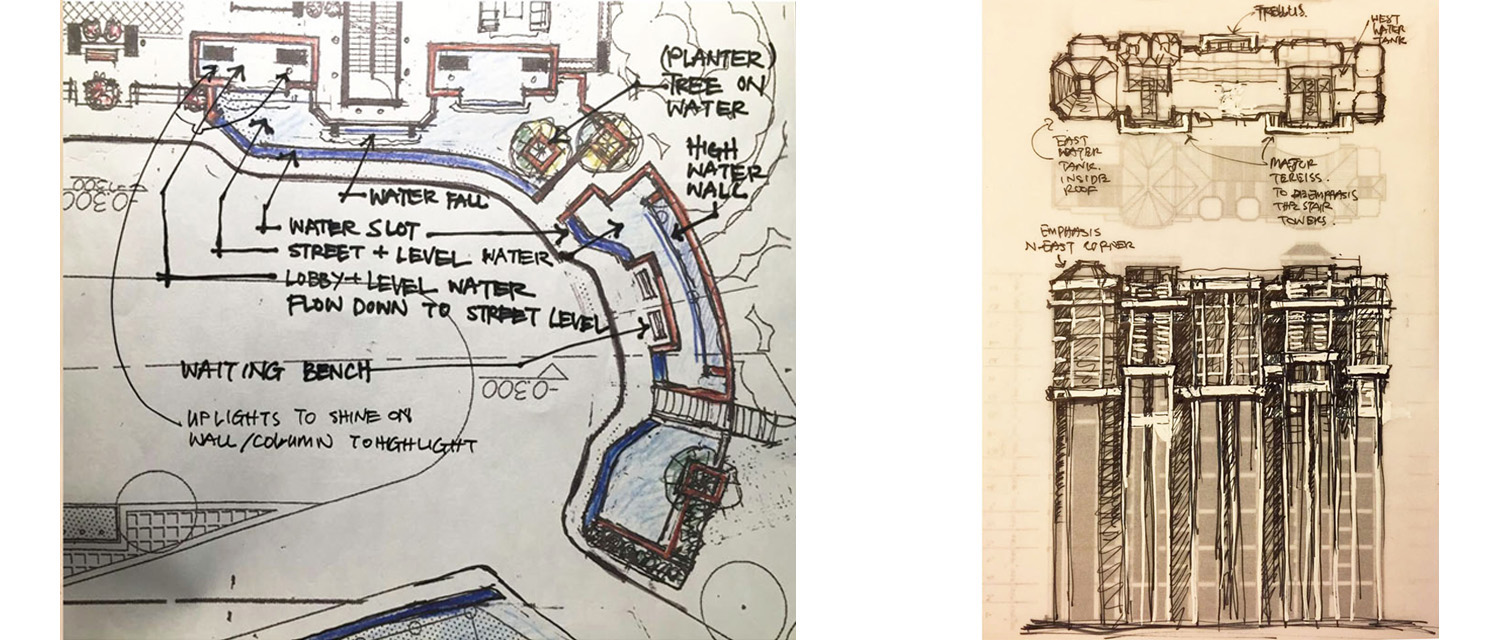 (PLANTER)
TREE ON
WATER
HIGH
WATER
WALL
-0.300
WATER FALL
WATER SLOT
STREET + LEVEL WATER
LOBBY + LEVEL WATER
FLOW DOWN TO STREET LEVEL
WAITING BENCH
-0.300
UPLIGHTS TO SHINE ON
WALL/COLUMN TO HIGHLIGHT
TRELLIS.
WEST
WATER
TANK
EAST
WATER
TANK.
INSIDE
ROOF
MAJOR
TO DEEMPHASIS
THE STAIR
TOWERS.
EMPHASIS
N-EAST CORNER